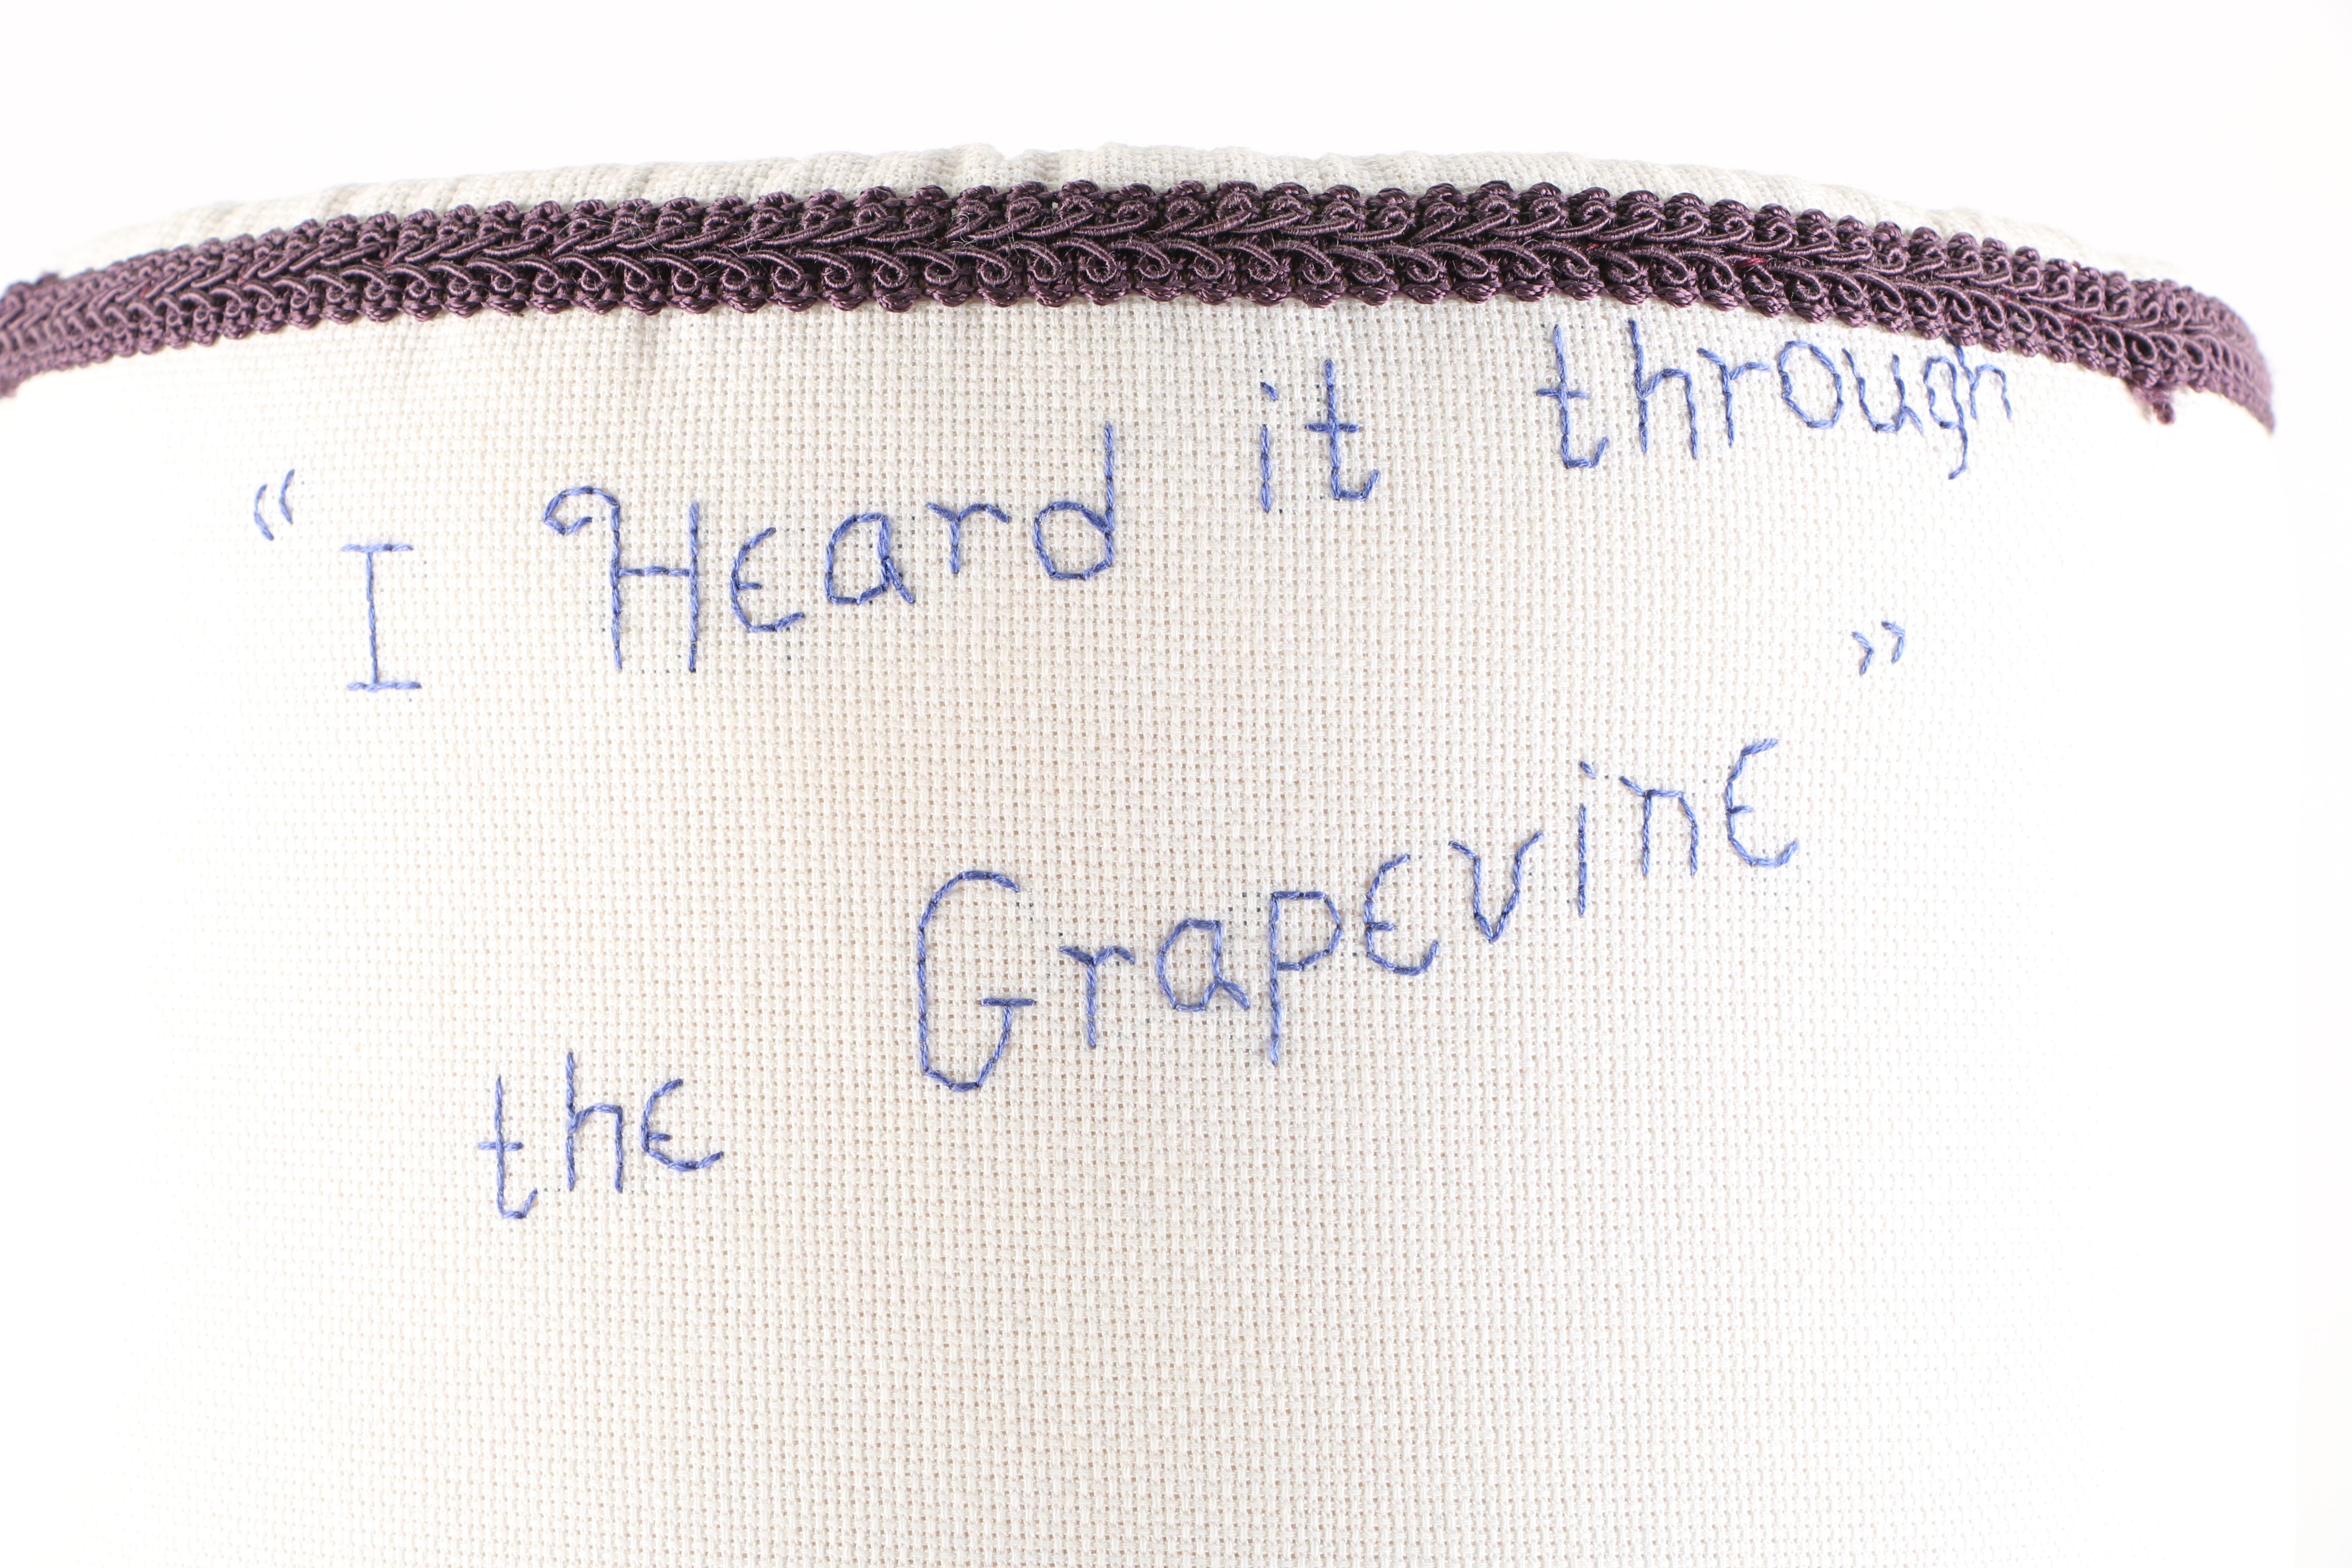 “I Heard it through
the Grapevine”